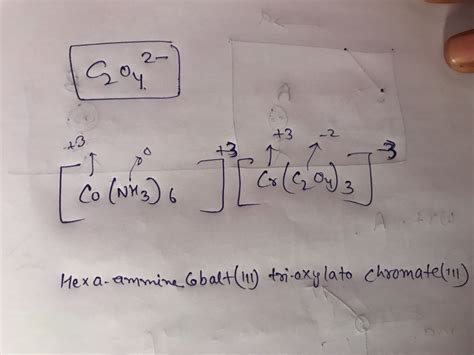 C2O4 2-
+3 0 +3 +3 -2 -3
[Co(NH3)6] [Cr(C2O4)3]
Hexa-ammine Cobalt(III) tri-oxylato chromate(III)